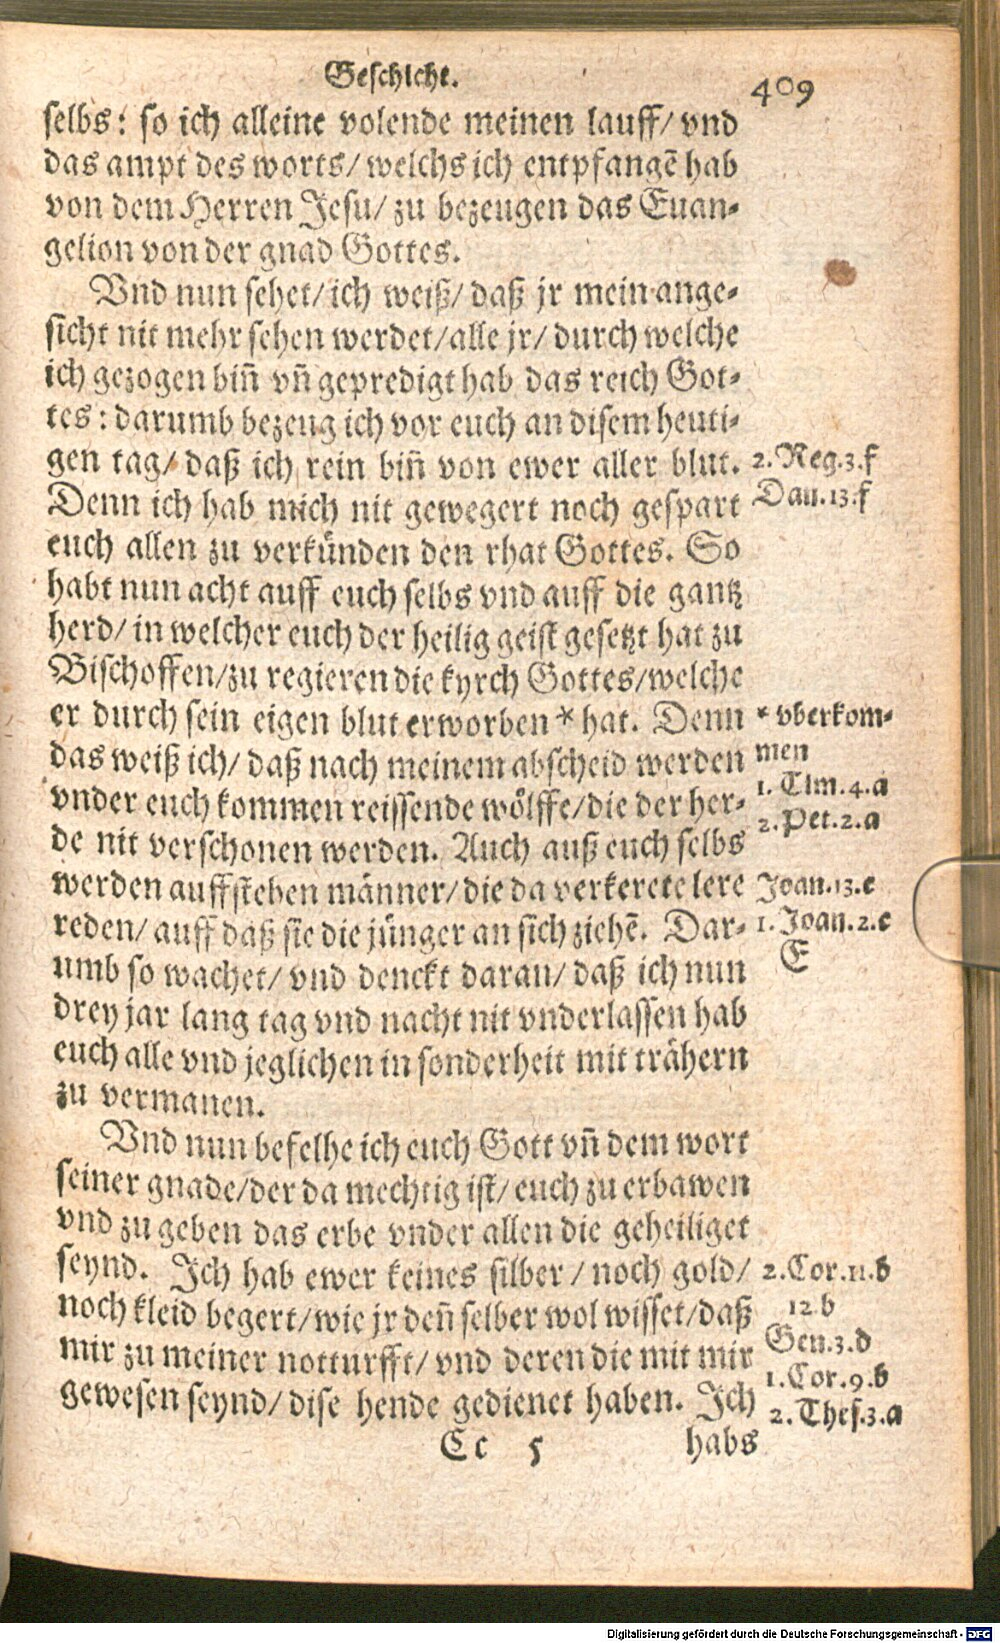 Geschicht.
409
selbs: so ich alleine volende meinen lauff/ vnd
das ampt des worts/ welchs ich entpfangē hab
von dem Herren Jesu/ zu bezeugen das Euan-
gelion von der gnad Gottes.
Vnd nun sehet/ ich weiß/ daß jr mein ange-
sicht nit mehr sehen werdet/ alle jr/ durch welche
ich gezogen biñ vñ gepredigt hab das reich Got-
tes: darumb bezeug ich vor euch an disem heuti-
gen tag/ daß ich rein biñ von ewer aller blut.
2. Reg.3.f
Denn ich hab mich nit gewegert noch gespart
Dan.13.f
euch allen zu verkünden den rhat Gottes. So
habt nun acht auff euch selbs vnd auff die gantz
herd/ in welcher euch der heilig geist gesetzt hat zu
Bischoffen/ zu regieren die kyrch Gottes/ welche
er durch sein eigen blut erworben * hat. Denn
* vberkom-
men
das weiß ich/ daß nach meinem abscheid werden
1. Tim.4.a
vnder euch kommen reissende wölffe/ die der her-
2. Pet.2.a
de nit verschonen werden. Auch auß euch selbs
werden auffsteben männer/ die da verkerete lere
Joan.13.c
reden/ auff daß sie die jünger an sich ziehē. Dar-
1. Joan.2.c
E
umb so wachet/ vnd denckt daran/ daß ich nun
drey jar lang tag vnd nacht nit vnderlassen hab
euch alle vnd jeglichen in sonderheit mit trähern
zu vermanen.
Vnd nun befelhe ich euch Gott vñ dem wort
seiner gnade/ der da mechtig ist/ euch zu erbawen
vnd zu geben das erbe vnder allen die geheiliget
seynd. Ich hab ewer keines silber/ noch gold/
2. Cor.11.b
12 b
noch kleid begert/ wie jr deñ selber wol wisset/ daß
Gen.3.d
mir zu meiner notturfft/ vnd deren die mit mir
1. Cor.9.b
gewesen seynd/ dise hende gedienet haben. Ich
2. Thes.3.a
Cc 5
habs
Digitalisierung gefördert durch die Deutsche Forschungsgemeinschaft - DFG